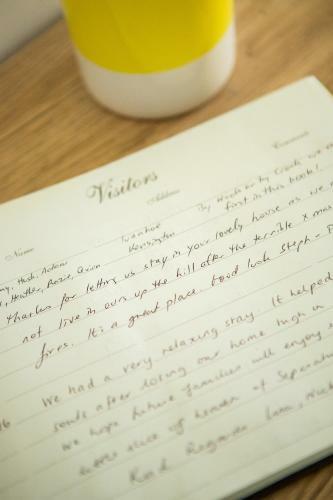 Visitors
Name Address Comment
Ivanhoe By Hook or by Crook we
Hugh, Heather, Rosie, Kensington first in this book!
Thanks for letting us stay in your lovely house as we
not live in ours up the hill after the terrible x mas
fires. It's a great place. Good luck Steph -
We had a very relaxing stay. It helped
souls after losing our home high
We hope future families will enjoy
little slice of heaven at Separation
Kind Regards